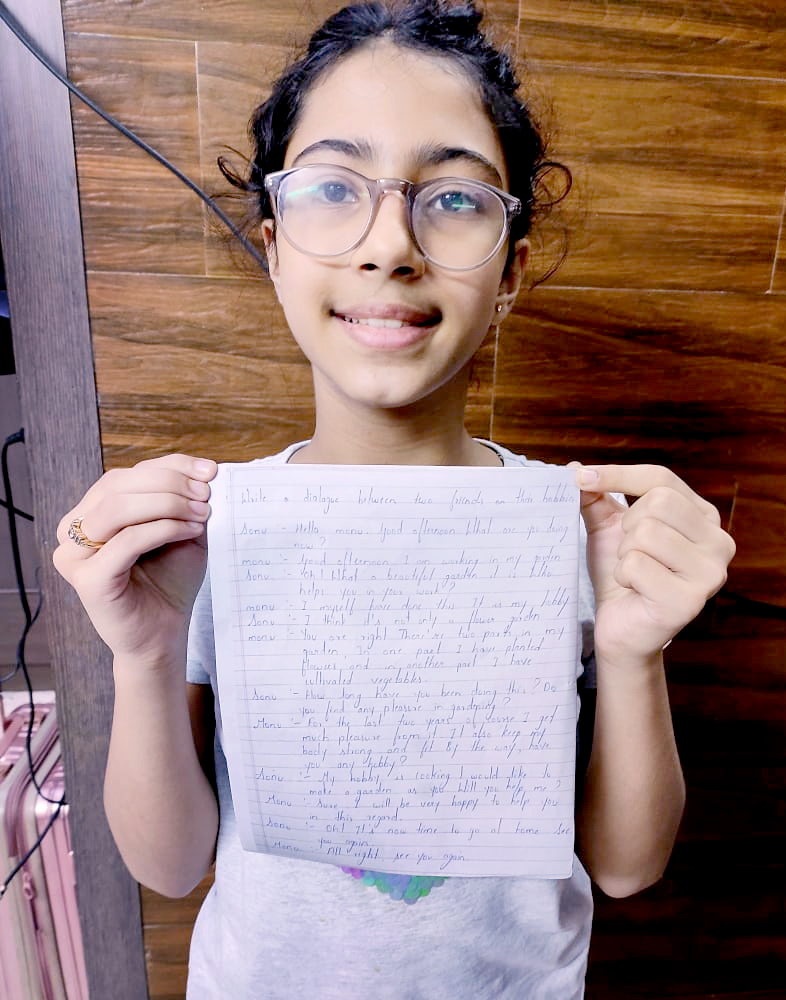 Write a dialogue between two friends on their hobbies
Sonu :- Hello, monu. Good afternoon What are you doing
now ?
monu :- Good afternoon I am working in my garden
Sonu :- Oh ! What a beautiful garden it is Who
helps you in your work ?
monu :- I myself have done this It is my hobby
Sonu :- I think it's not only a flower garden
monu :- You are right There're two parts in my
garden In one part I have planted
flowers and in another part I have
cultivated vegetables.
Sonu :- How long have you been doing this ? Do
you find any pleasure in gardening ?
Monu :- For the last two years of course I get
much pleasure from it It also keep my
body strong and fit By the way, have
you any hobby ?
Sonu :- My hobby is cooking I would like to
make a garden as you Will you help me ?
Monu :- Sure I will be very happy to help you
in this regard.
Sonu :- Oh! It's now time to go at home See
you again.
Monu :- All right, see you again